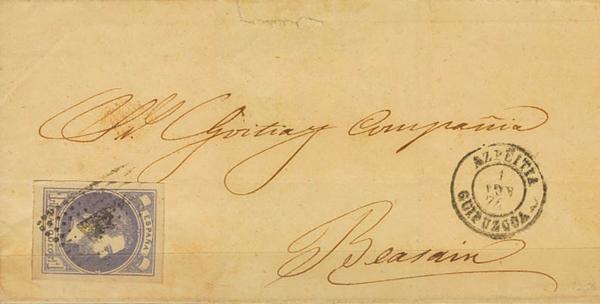 Sres. Goitia y Compañia
AZPEITIA
1
AGO
74
GUIPUZCOA
ESPAÑA
Beasain